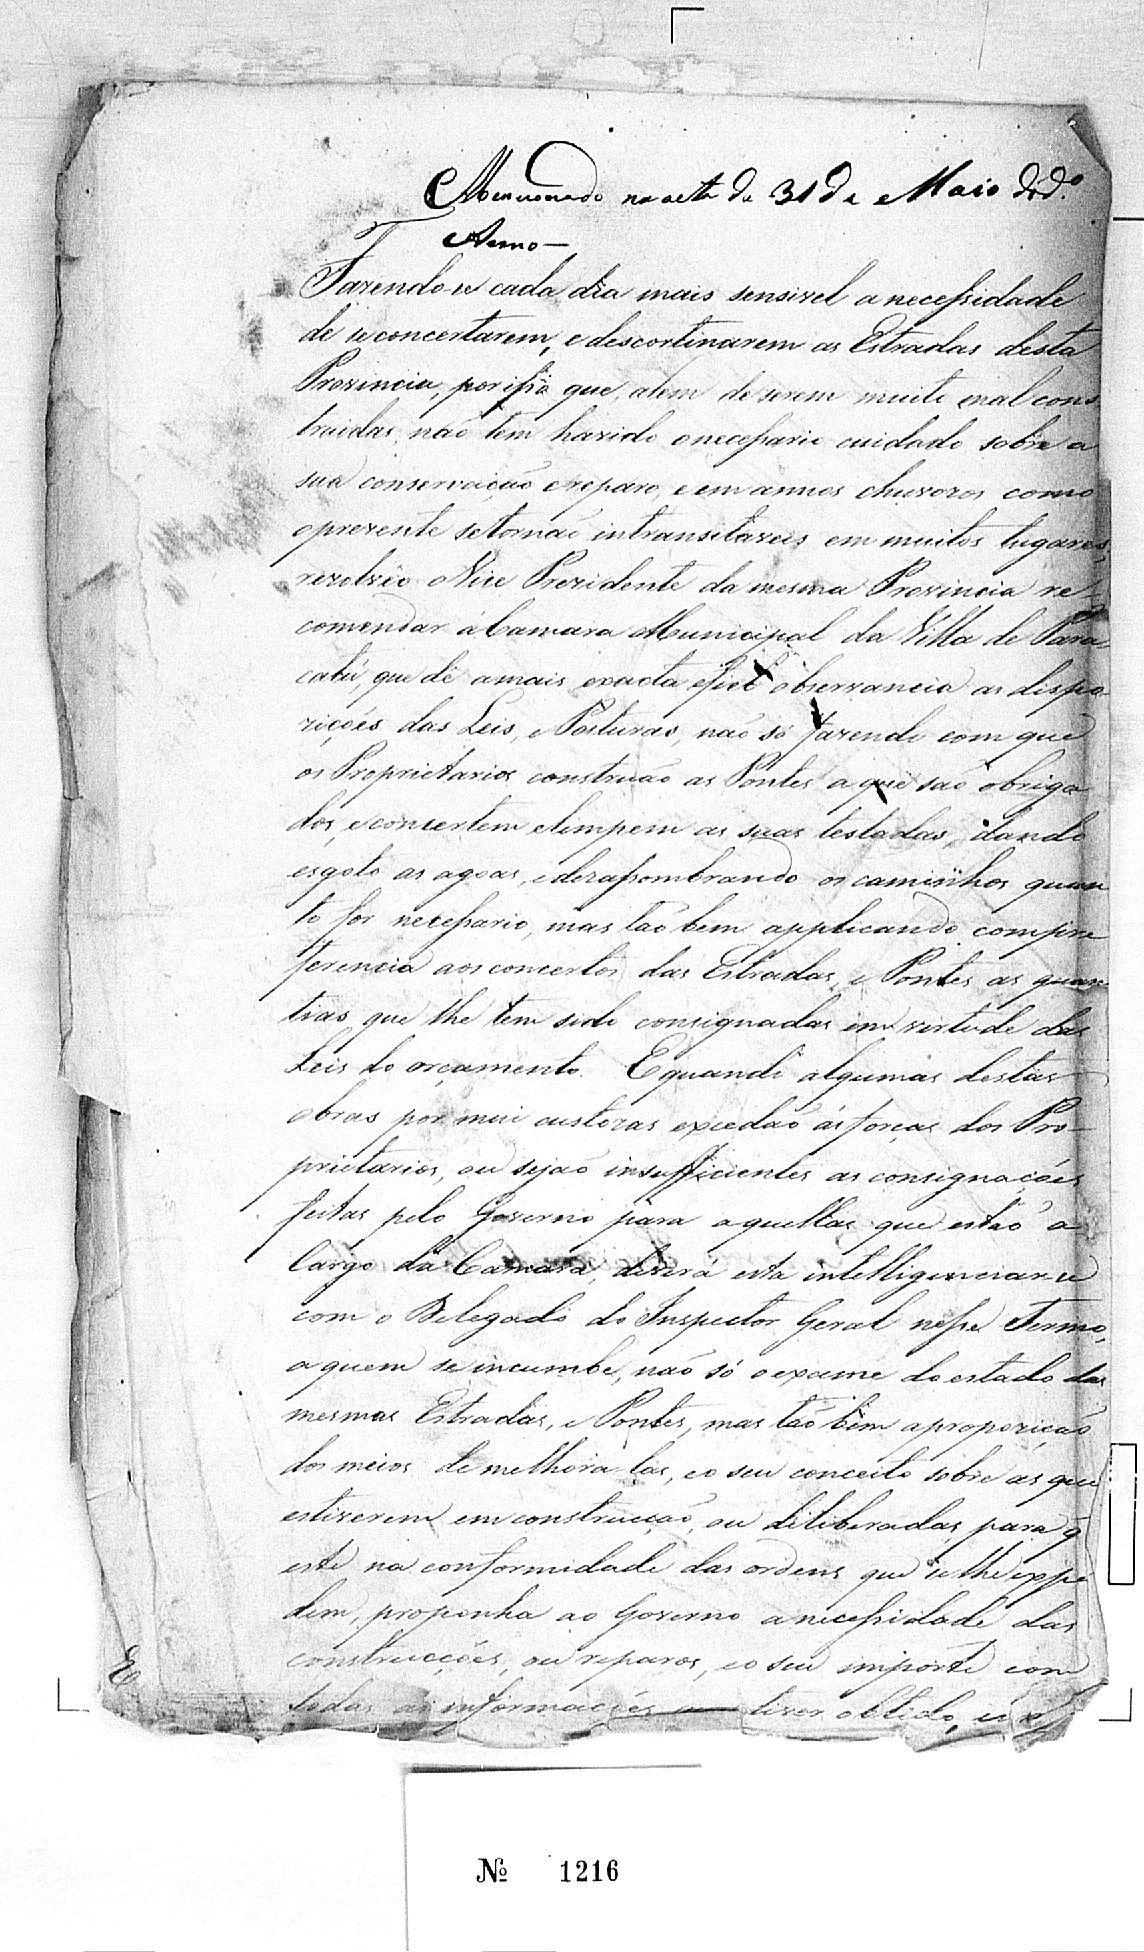 Mencionado na acta de 31 de Maio do dº.
Anno —
Fazendo-se cada dia mais sensivel a necessidade
de se concertarem, e descortinarem as Estradas desta
Provincia, por isso que, alem de serem muito mal cons
truidas, não tem havido o necessario cuidado sobre a
sua conservação e reparo, e em annos chuvozos como
o prezente se tornão intransitaveis em muitos lugares,
rezolveo o Vice Prezidente da mesma Provincia re-
comendar á Camara Municipal da Villa de Para-
catú, que dê a mais exacta e fiel observancia as dispo
zições das Leis, e Posturas, não só fazendo com que
os Proprietarios construão as Pontes a que são obriga
dos, e concertem e limpem as suas testadas, dando
esgoto as agoas, e dezassombrando os caminhos quan
to for necessario, mas tão bem applicando com pre
ferencia aos concertos das Estradas, e Pontes as quan
tias que lhe tem sido consignadas em virtude das
Leis do orçamento. E quando algumas destas
obras por mui custozas excedão ás forças dos Pro-
prietarios, ou sejão insufficientes as consignações
feitas pelo Governo para aquellas que estão a
largo da Camara, deverá esta intelligenciar-se
com o Delegado do Inspector Geral nesse Termo,
a quem se incumbe, não só o exame do estado das
mesmas Estradas, e Pontes, mas tão bem a propozição
dos meios de melhora-las, e o seu conceito sobre as que
estiverem em construcção, ou deliberadas, para q̃
este na conformidade das ordens que se lhe expe
dem, proponha ao Governo a necessidade das
construcções, ou reparos, e o seu importe com
todas as informações que tiver obtido, e
E
Nº 1216